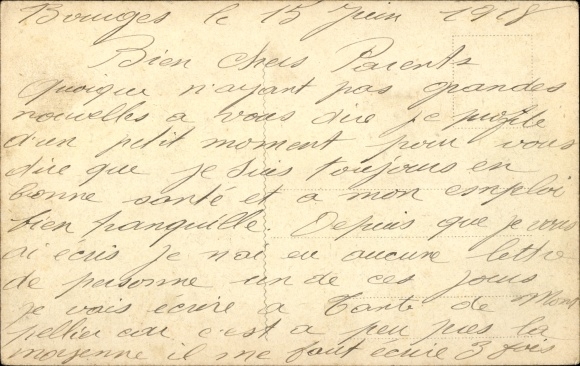 Bourges le 15 Juin 1918
Bien chers Parents
Quoique n'ayant pas grandes
nouvelles a vous dire je profite
d'un petit moment pour vous
dire que je suis toujours en
bonne santé et a mon emploi
bien tranquille. Depuis que je vous
ai écris je n'ai eu aucune lettre
de personne un de ces jours
je vais écrire a Tante de Mont
pellier car c'est a peu pres la
moyenne il me faut écrire 3 fois